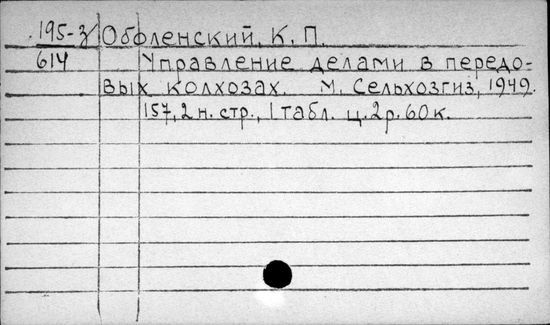 195-з Оболенский, К. П.
614 Управление делами в передо-
вых колхозах. М. Сельхозгиз, 1949.
157, 2 н. стр., 1 табл. ц. 2 р. 60 к.